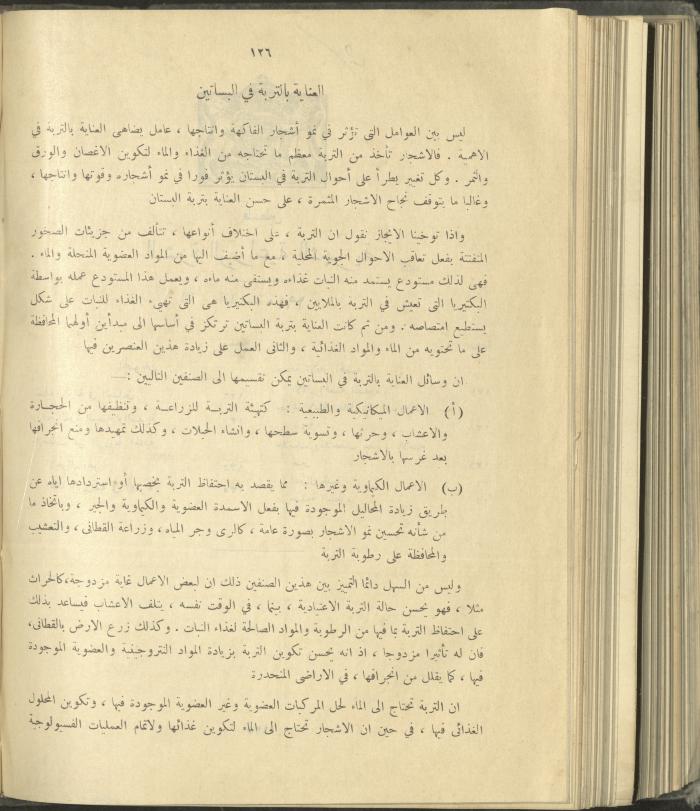 ١٢٦
العناية بالتربة في البساتين
ليس بين العوامل التي تؤثر في نمو أشجار الفاكهة وانتاجها ، عامل يضاهى العناية بالتربة في
الاهمية . فالاشجار تأخذ من التربة معظم ما تحتاجه من الغذاء والماء لتكوين الاغصان والورق
والثمر . وكل تغيير يطرأ على أحوال التربة في البستان يؤثر فورا في نمو أشجاره وقوتها وانتاجها ،
وغالبا ما يتوقف نجاح الاشجار المثمرة ، على حسن العناية بتربة البستان
واذا توخينا الايجاز نقول ان التربة ، على اختلاف أنواعها ، تتألف من جزيئات الصخور
المتفتتة بفعل تعاقب الاحوال الجوية المحلية ، مع ما أضيف اليها من المواد العضوية المنحلة والماء .
فهى لذلك مستودع يستمد منه النبات غذاءه ويستقى منه ماءه ، ويعمل هذا المستودع عمله بواسطة
البكتيريا التى تعيش في التربة بالملايين ، فهذه البكتيريا هى التى تهيء الغذاء للنبات على شكل
يستطيع امتصاصه . ومن ثم كانت العناية بتربة البساتين ترتكز في أساسها الى مبدأين أولهما المحافظة
على ما تحتويه من الماء والمواد الغذائية ، والثانى العمل على زيادة هذين العنصرين فيها
ان وسائل العناية بالتربة في البساتين يمكن تقسيمها الى الصنفين التاليين :—
(أ) الاعمال الميكانيكية والطبيعية : كتهيئة التربة للزراعة ، وتنظيفها من الحجارة
والاعشاب ، وحرثها ، وتسوية سطحها ، وانشاء الحبلات ، وكذلك تمهيدها ومنع انجرافها
بعد غرسها بالاشجار
(ب) الاعمال الكيماوية وغيرها : مما يقصد به احتفاظ التربة بخصبها أو استردادها اياه عن
طريق زيادة المحاليل الموجودة فيها بفعل الاسمدة العضوية والكيماوية والجير ، وباتخاذ ما
من شأنه تحسين نمو الاشجار بصورة عامة ، كالرى وجر المياه ، وزراعة القطانى ، والتعشيب
والمحافظة على رطوبة التربة
وليس من السهل دائما التمييز بين هذين الصنفين ذلك ان لبعض الاعمال غاية مزدوجة،كالحراث
مثلا ، فهو يحسن حالة التربة الاعتيادية ، بينما ، في الوقت نفسه ، يتلف الاعشاب فيساعد بذلك
على احتفاظ التربة بما فيها من الرطوبة والمواد الصالحة لغذاء النبات . وكذلك زرع الارض بالقطانى،
فان له تأثيرا مزدوجا ، اذ انه يحسن تكوين التربة بزيادة المواد النتروجينية والعضوية الموجودة
فيها ، كما يقلل من انجرافها ، في الاراضى المنحدرة
ان التربة تحتاج الى الماء لحل المركبات العضوية وغير العضوية الموجودة فيها ، وتكوين المحلول
الغذائى فيها ، في حين ان الاشجار تحتاج الى الماء لتكوين غذائها ولاتمام العمليات الفسيولوجية